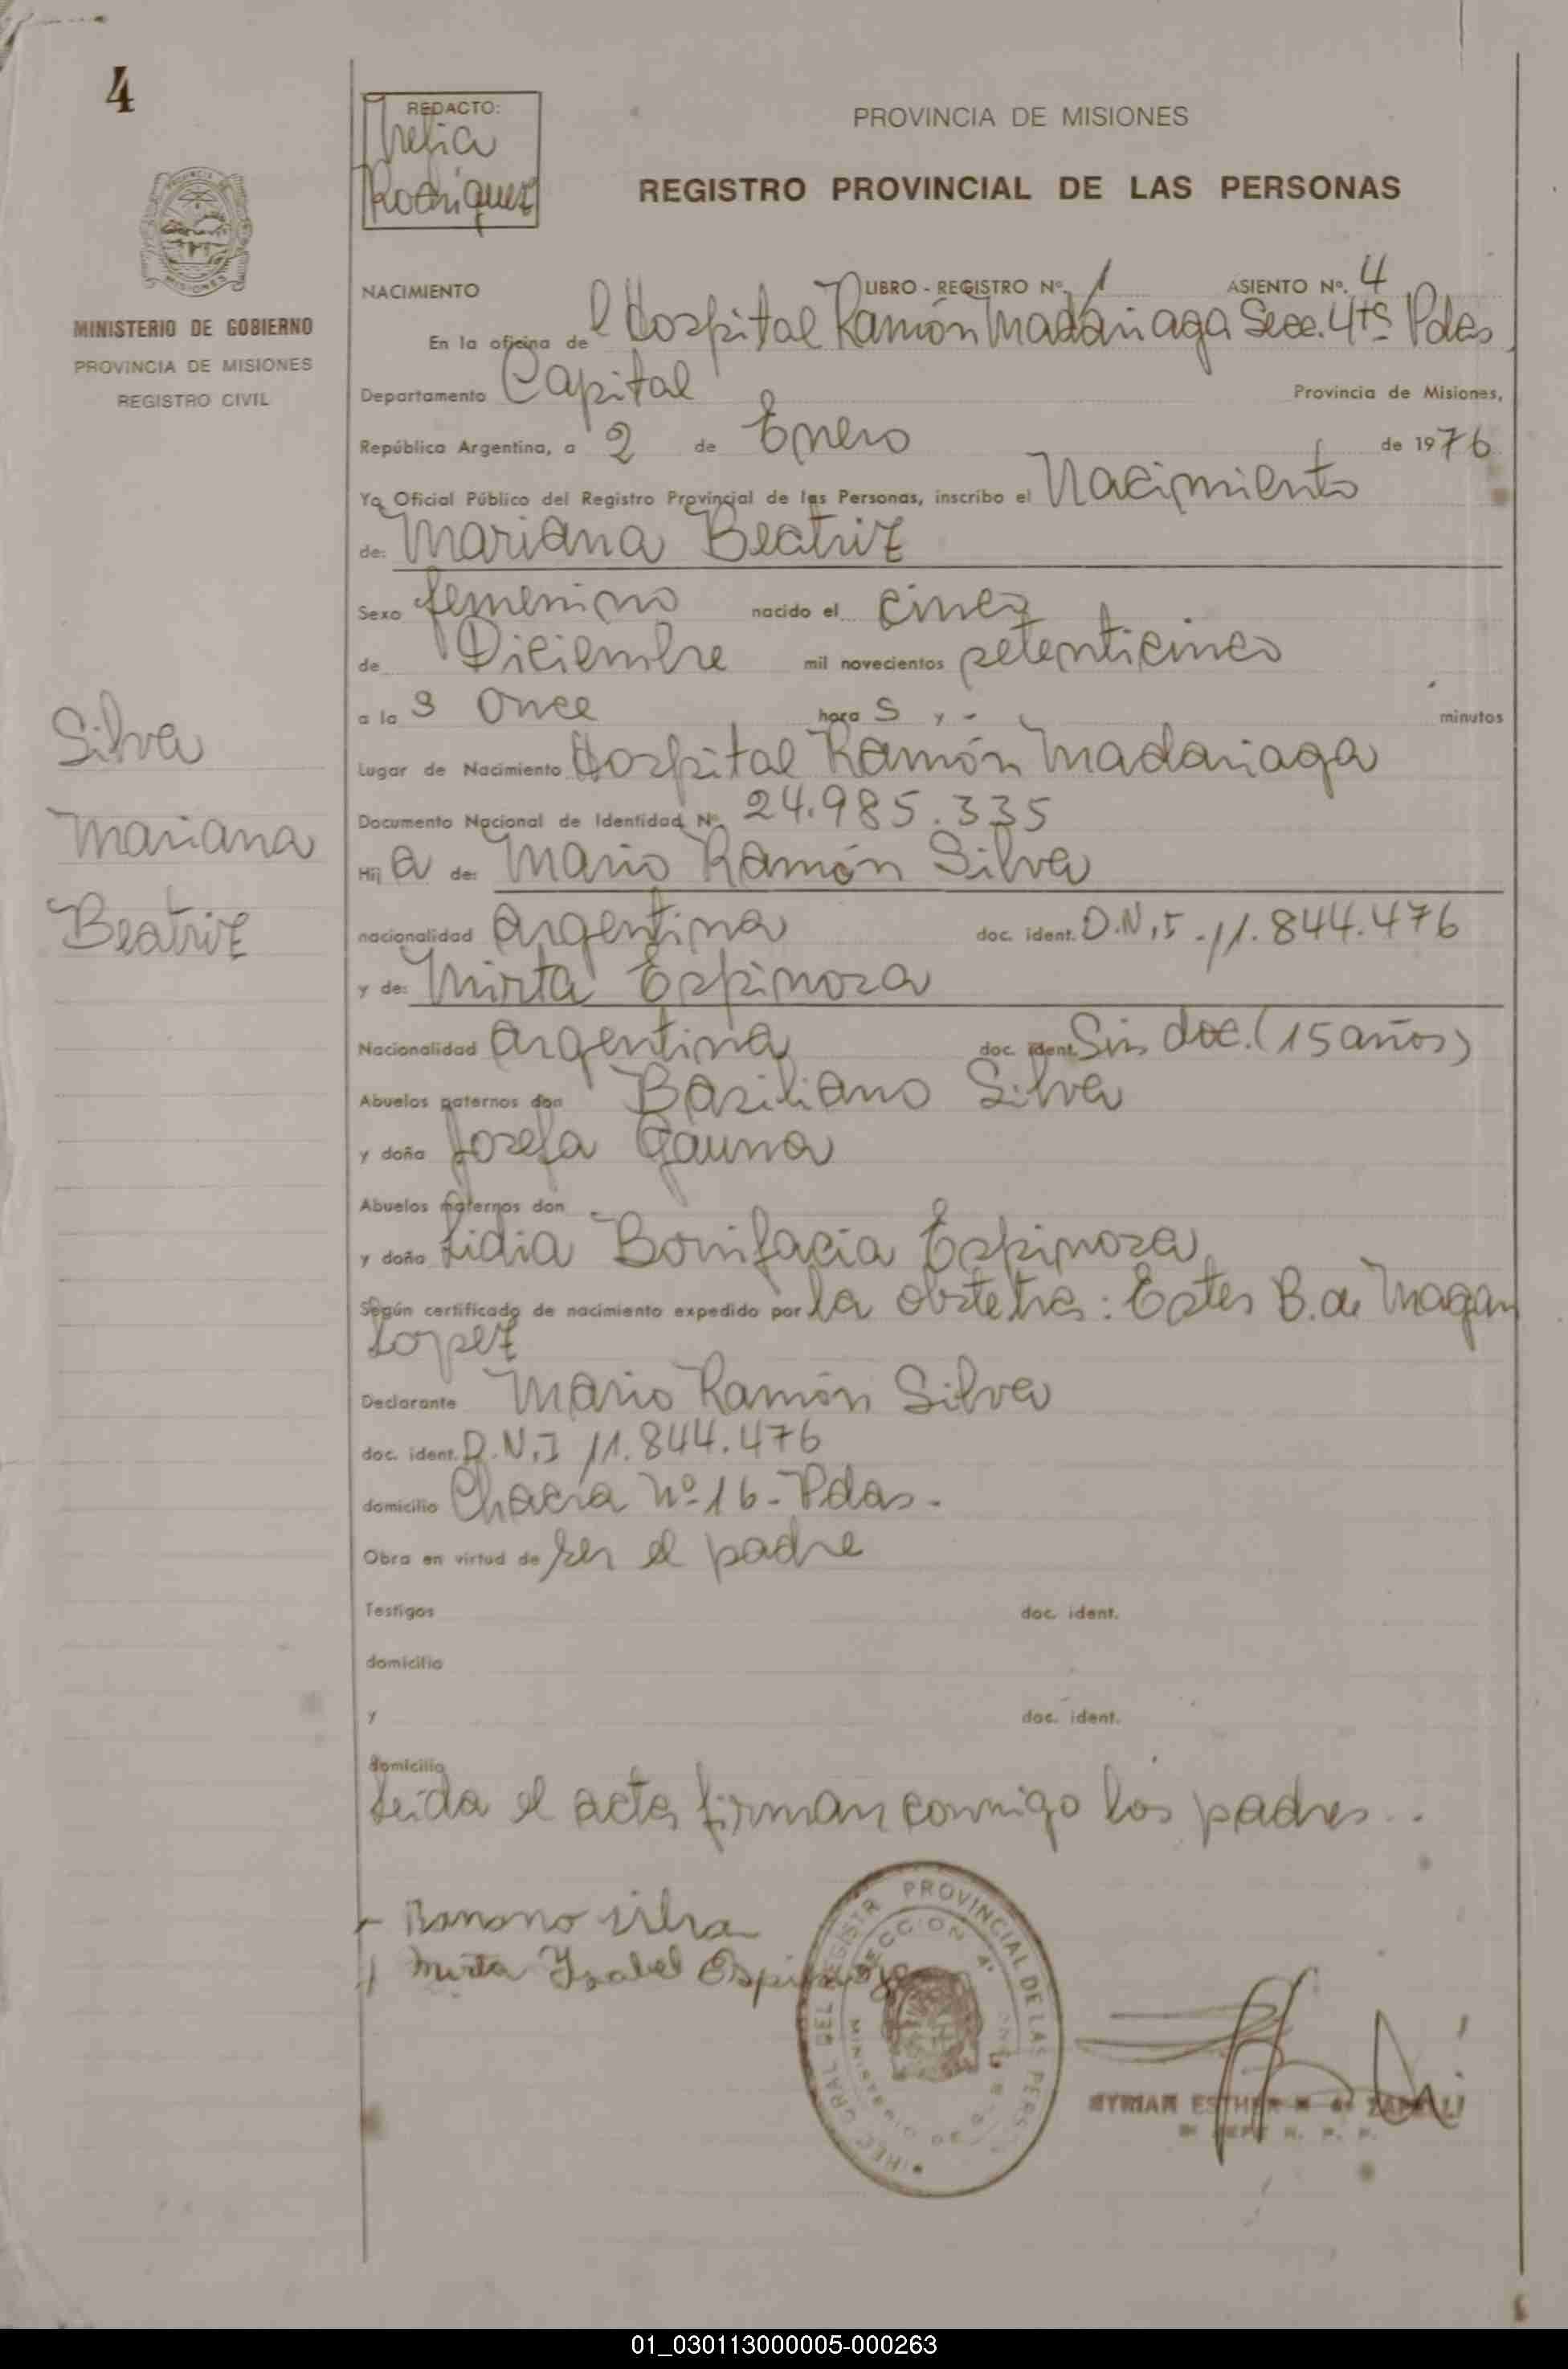 4
REDACTO:
Rodriguez
PROVINCIA DE MISIONES
REGISTRO PROVINCIAL DE LAS PERSONAS
PROVINCIA
MISIONES
MINISTERIO DE GOBIERNO
PROVINCIA DE MISIONES
REGISTRO CIVIL
NACIMIENTO LIBRO - REGISTRO Nº. 1 ASIENTO Nº. 4
En la oficina de l Hospital Ramón Madariaga Secc. 4ta Pdas
Departamento Capital Provincia de Misiones,
República Argentina, a 2 de Enero de 1976
Yo, Oficial Público del Registro Provincial de las Personas, inscribo el Nacimiento
de: Mariana Beatriz
Sexo femenino nacido el cinco
de Diciembre mil novecientos setenticinco
a la s Once hora s y - minutos
Lugar de Nacimiento Hospital Ramón Madariaga
Documento Nacional de Identidad Nº 24.985.335
Hij a de: Mario Ramón Silva
nacionalidad argentina doc. ident. D.N.I. 11.844.476
y de: Mirta Espinoza
Nacionalidad argentina doc. ident. Sin doc. (15 años)
Abuelos paternos don Basiliano Silva
y doña Josefa Gauna
Abuelos maternos don -
y doña Lidia Bonifacia Espinoza
Según certificado de nacimiento expedido por la obstetra: Ester B. de Magan
Lopez
Declarante Mario Ramón Silva
doc. ident. D.N.I 11.844.476
domicilio Chacra Nº 16 - Pdas.
Obra en virtud de ser el padre
Testigos doc. ident.
domicilio
y doc. ident.
domicilio
Leída el acta firman conmigo los padres.
Silva
Mariana
Beatriz
Mirta Ysabel Espinoza
REGISTR PROVINCIAL DE LAS PERS
SECCION 4ª
MINISTERIO DE GOB
MYRIAM ESTHER
01_030113000005-000263